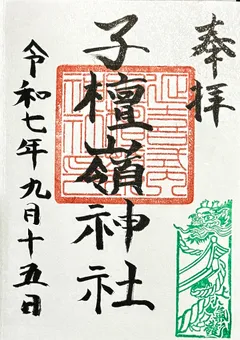 奉拝
子檀嶺神社
令和七年九月十五日